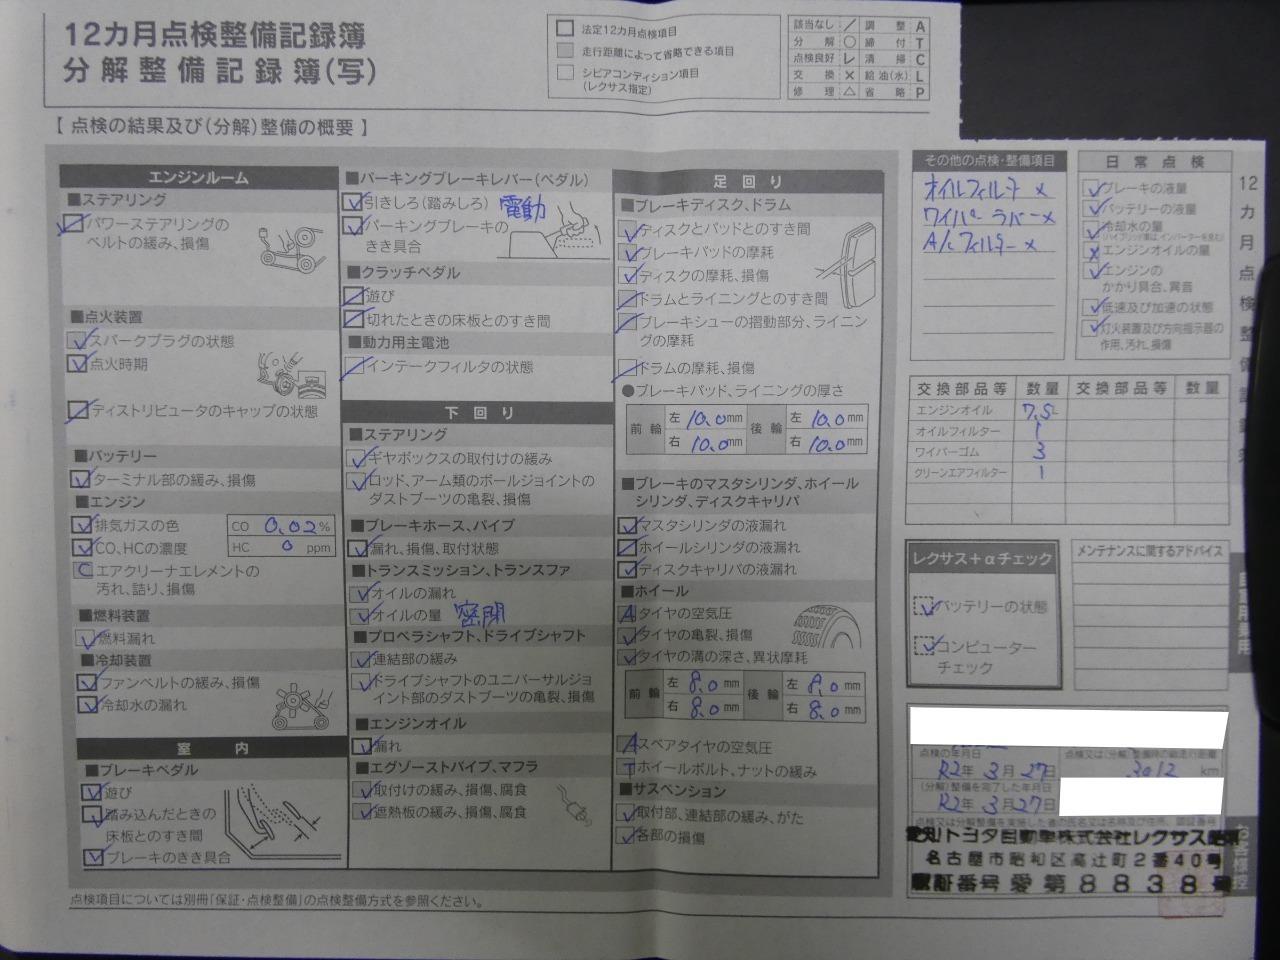 12カ月点検整備記録簿
分解整備記録簿(写)
法定12カ月点検項目
走行距離によって省略できる項目
シビアコンディション項目
(レクサス指定)
該当なし ／ 調整 A
分解 ○ 締付 T
点検良好 レ 清掃 C
交換 × 給油(水) L
修理 △ 省略 P
【 点検の結果及び(分解)整備の概要 】
エンジンルーム
■ステアリング
パワーステアリングの
ベルトの緩み、損傷
■点火装置
スパークプラグの状態
点火時期
ディストリビュータのキャップの状態
■バッテリー
ターミナル部の緩み、損傷
■エンジン
排気ガスの色
CO 0.02 %
CO、HCの濃度
HC 0 ppm
C エアクリーナエレメントの
汚れ、詰り、損傷
■燃料装置
燃料漏れ
■冷却装置
ファンベルトの緩み、損傷
冷却水の漏れ
室内
■ブレーキペダル
遊び
踏み込んだときの
床板とのすき間
ブレーキのきき具合
■パーキングブレーキレバー(ペダル)
引きしろ(踏みしろ) 電動
パーキングブレーキの
きき具合
■クラッチペダル
遊び
切れたときの床板とのすき間
■動力用主電池
インテークフィルタの状態
下回り
■ステアリング
ギヤボックスの取付けの緩み
ロッド、アーム類のボールジョイントの
ダストブーツの亀裂、損傷
■ブレーキホース、パイプ
漏れ、損傷、取付状態
■トランスミッション、トランスファ
オイルの漏れ
オイルの量 密閉
■プロペラシャフト、ドライブシャフト
連結部の緩み
ドライブシャフトのユニバーサルジョ
イント部のダストブーツの亀裂、損傷
■エンジンオイル
漏れ
■エグゾーストパイプ、マフラ
取付けの緩み、損傷、腐食
遮熱板の緩み、損傷、腐食
足回り
■ブレーキディスク、ドラム
ディスクとパッドとのすき間
ブレーキパッドの摩耗
ディスクの摩耗、損傷
ドラムとライニングとのすき間
ブレーキシューの摺動部分、ライニン
グの摩耗
ドラムの摩耗、損傷
●ブレーキパッド、ライニングの厚さ
前輪 左 10.0 mm 後輪 左 10.0 mm
右 10.0 mm 右 10.0 mm
■ブレーキのマスタシリンダ、ホイール
シリンダ、ディスクキャリパ
マスタシリンダの液漏れ
ホイールシリンダの液漏れ
ディスクキャリパの液漏れ
■ホイール
A タイヤの空気圧
タイヤの亀裂、損傷
タイヤの溝の深さ、異状摩耗
前輪 左 8.0 mm 後輪 左 8.0 mm
右 8.0 mm 右 8.0 mm
A スペアタイヤの空気圧
T ホイールボルト、ナットの緩み
■サスペンション
取付部、連結部の緩み、がた
各部の損傷
点検項目については別冊「保証・点検整備」の点検整備方式を参照ください。
その他の点検・整備項目
オイルフィルター ×
ワイパーラバー ×
A/Cフィルター ×
日常点検
ブレーキの液量
バッテリーの液量
冷却水の量
(ハイブリッド車は、インバーターを含む)
エンジンオイルの量
エンジンの
かかり具合、異音
低速及び加速の状態
灯火装置及び方向指示器の
作用、汚れ、損傷
交換部品等 数量 交換部品等 数量
エンジンオイル 7.5
オイルフィルター 1
ワイパーゴム 3
クリーンエアフィルター 1
レクサス+αチェック
バッテリーの状態
コンピューター
チェック
メンテナンスに関するアドバイス
点検の年月日
R2年 3月 27日
3012 km
(分解)整備を完了した年月日
R2年 3月 27日
愛知トヨタ自動車株式会社レクサス
名古屋市昭和区高辻町2番40号
認証番号愛第8838号
12カ月点検整備
自家用乗用
お客様控